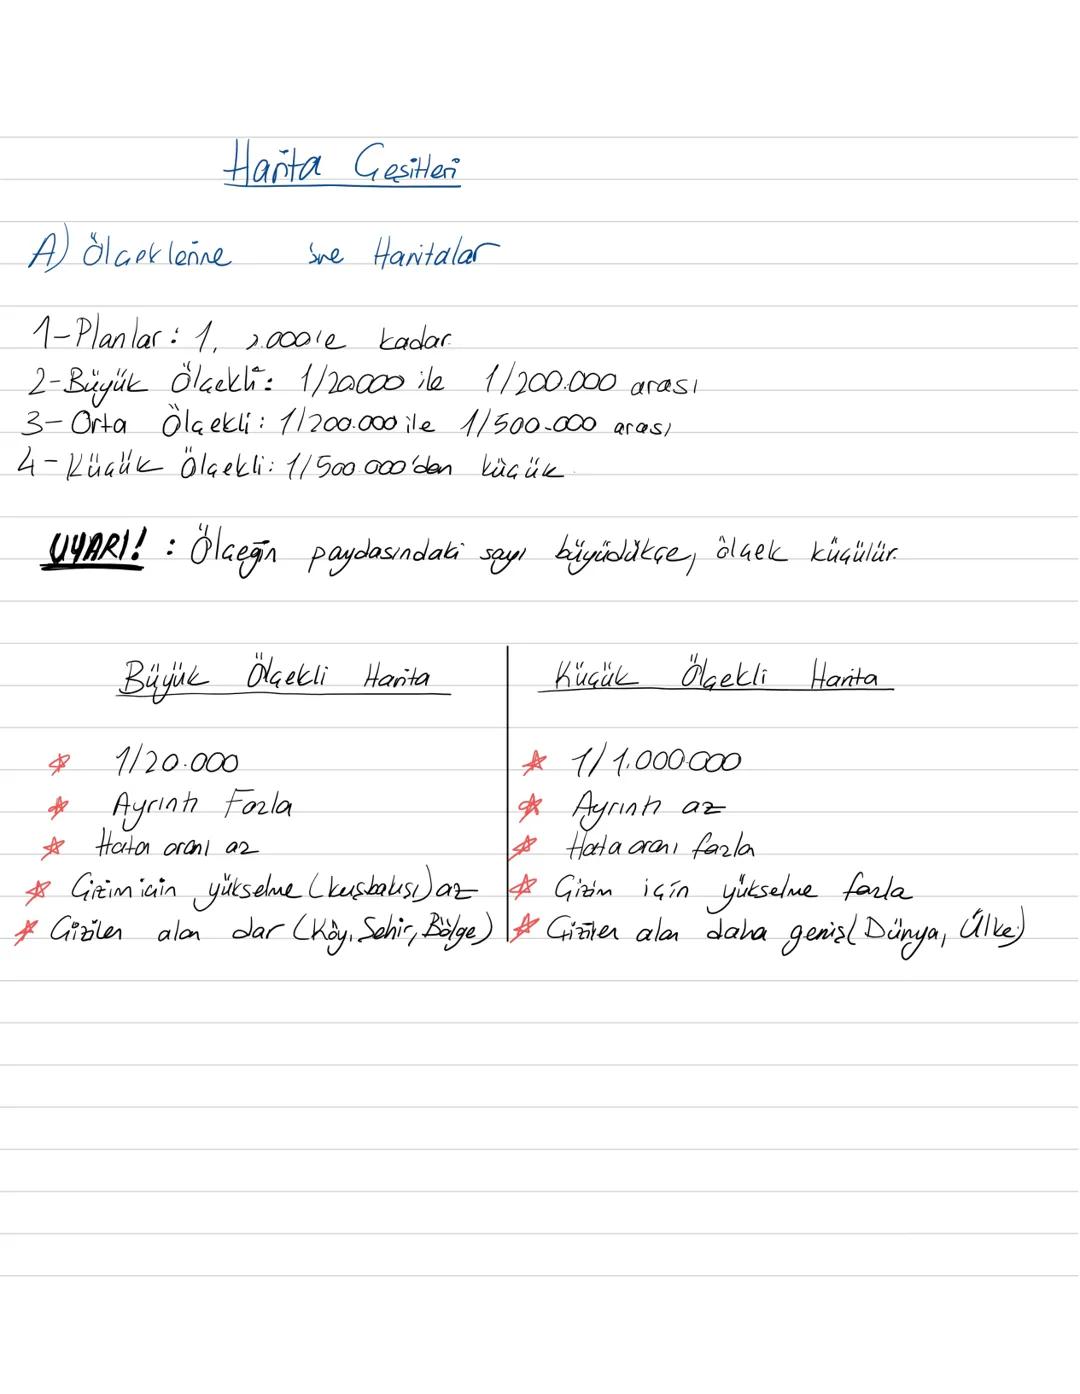 Harita Çeşitleri
A) Ölçeklerine Haritalar
1-Planlar: kadar
2-Büyük Ölçekli: 1/20000 ile 1/200.000 arası
3- Orta Ölçekli: 1/200.000 ile 1/500.000 arası
4- Küçük Ölçekli: 1/500 000'den küçük
UYARI! : Ölçeğin paydasındaki sayı büyüdükçe, ölçek küçülür.
Büyük Ölçekli Harita
* 1/20.000
* Ayrıntı Fazla
* Hata oranı az
* Çizim için yükselme (kuşbakışı) az
* Çizilen alan dar (Köy, Şehir, Bölge)
Küçük Ölçekli Harita
* 1/1.000.000
* Ayrıntı az
* Hata oranı fazla
* Çizim için yükselme fazla
* Çizilen alan daha geniş (Dünya, Ülke)